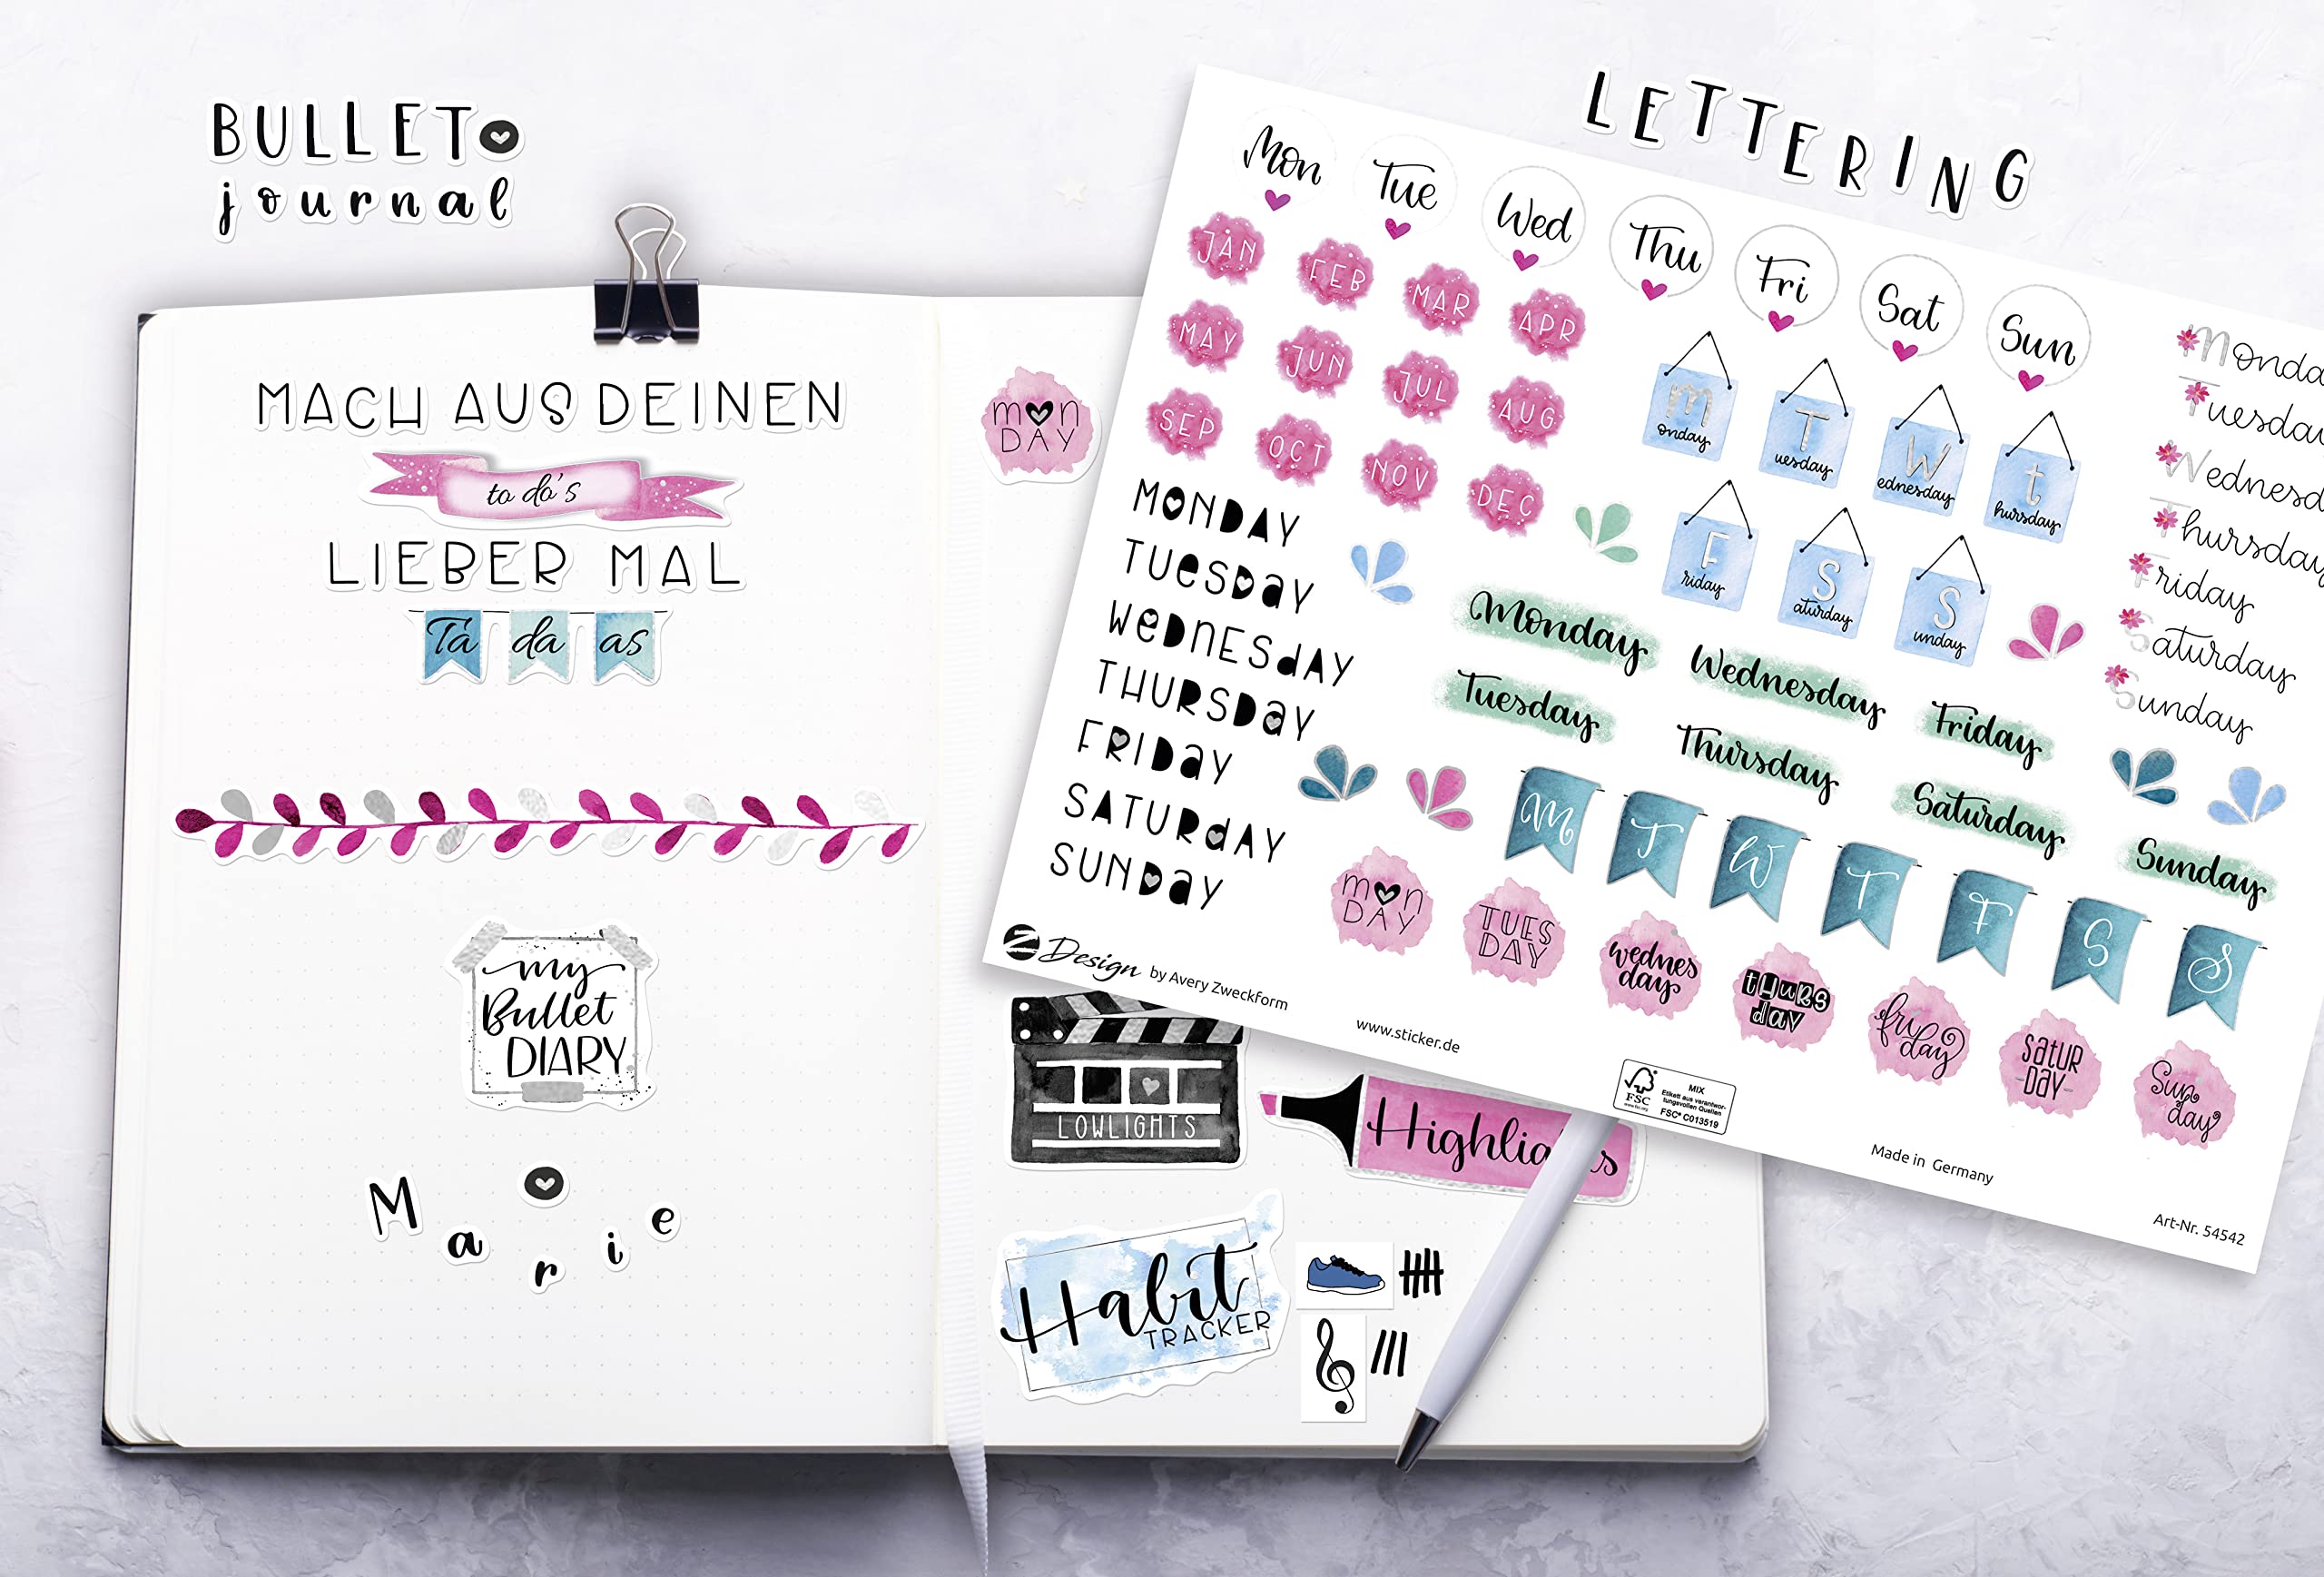 BULLET
journal
LETTERING
MACH AUS DEINEN
to do's
LIEBER MAL
Ta da as
my
Bullet
DIARY
Marie
mon
DAY
LOWLIGHTS
Habit
TRACKER
Mon Tue Wed Thu Fri Sat Sun
JAN FEB MAR APR
MAY JUN JUL AUG
SEP OCT NOV DEC
MONDAY
TUESDAY
WEDNESDAY
THURSDAY
FRIDAY
SATURDAY
SUNDAY
monday Tuesday Wednesday thursday
Friday Saturday Sunday
Monday
Tuesday
Wednesday
Thursday
Friday
Saturday
Sunday
Tuesday
Thursday
Friday
Saturday
Sunday
M T W T F S S
mon
DAY
TUES
DAY
wednes
day
thurs
day
fri
day
satur
DAY
Sun
day
Z Design by Avery Zweckform
www.sticker.de
FSC
www.fsc.org
MIX
Etikett aus verantwor-
tungsvollen Quellen
FSC® C013519
Made in Germany
Art-Nr. 54542